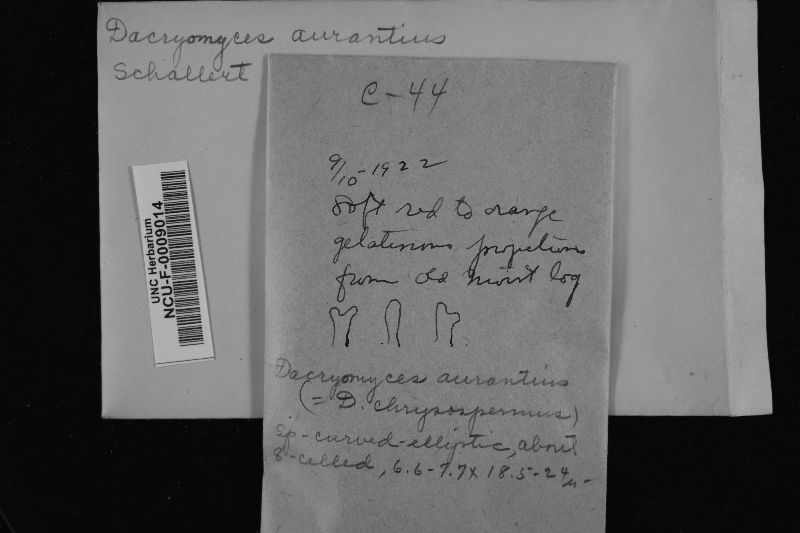 Dacryomyces aurantius
Schallert
UNC Herbarium
NCU-F-0009014
C-44
9/10-1922
soft red to orange
gelatinous projections
from old moist log
Dacryomyces aurantius
(= D. chrysospermus)
sp-curved-elliptic, about
8-celled, 6.6-7.7 x 18.5-24 µ-